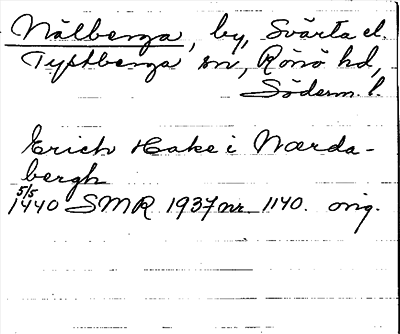 Nälberga, by, Svärta el.
Tystberga sn, Rönö hd,
Söderm. l.
Erich Hake i Nærda-
bergh
5/5
1440 SMR 1937 nr 1140. orig.